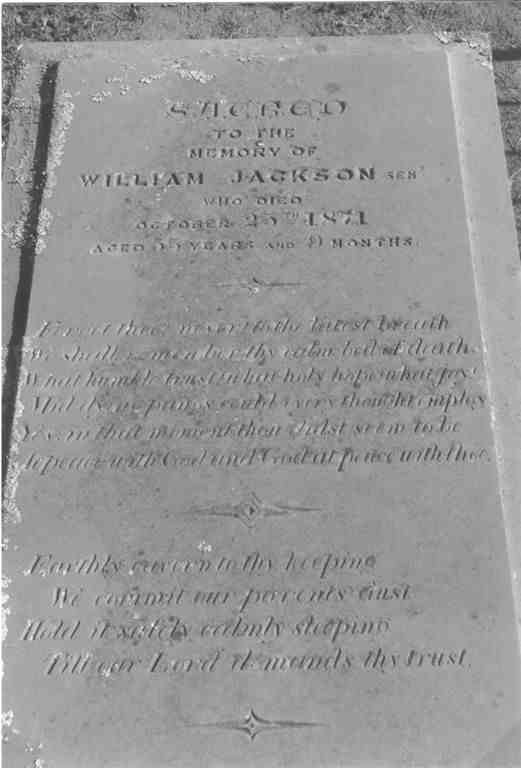 SACRED
TO THE
MEMORY OF
WILLIAM JACKSON SENR
WHO DIED
OCTOBER 25TH 1871
AGED YEARS AND 9 MONTHS.
Forget thee never! to the latest breath
We shall remember thy calm bed of death.
What humble trust what holy hope what joys
Mid dying pangs could every thought employ
Yes in that moment thou didst seem to be
At peace with God and God at peace with thee.
Earthly cavern to thy keeping
We commit our parents dust
Hold it safely calmly sleeping
Till our Lord demands thy trust.